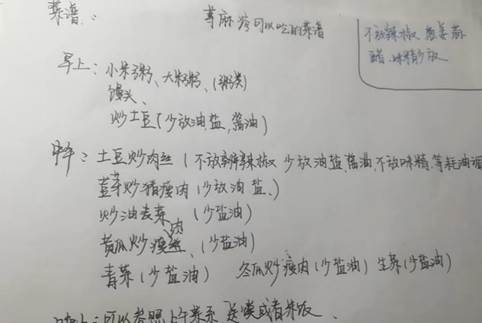 菜谱：
荨麻疹可以吃的菜谱
不放辣椒 葱姜蒜
醋、味精少放
早上：小米粥、大米粥、(粥类)
馒头、
炒土豆(少放油、盐、酱油)
中午：土豆炒肉丝(不放辣椒 少放油盐酱油,不放味精、等耗油酒
炒猪瘦肉(少放油 盐、)
炒油麦菜(少盐油)
黄瓜炒瘦肉(少盐油)
青菜(少盐油) 冬瓜炒瘦肉(少盐油) 生菜(少盐油)
晚上：可以参照上午菜系 或者米饭、